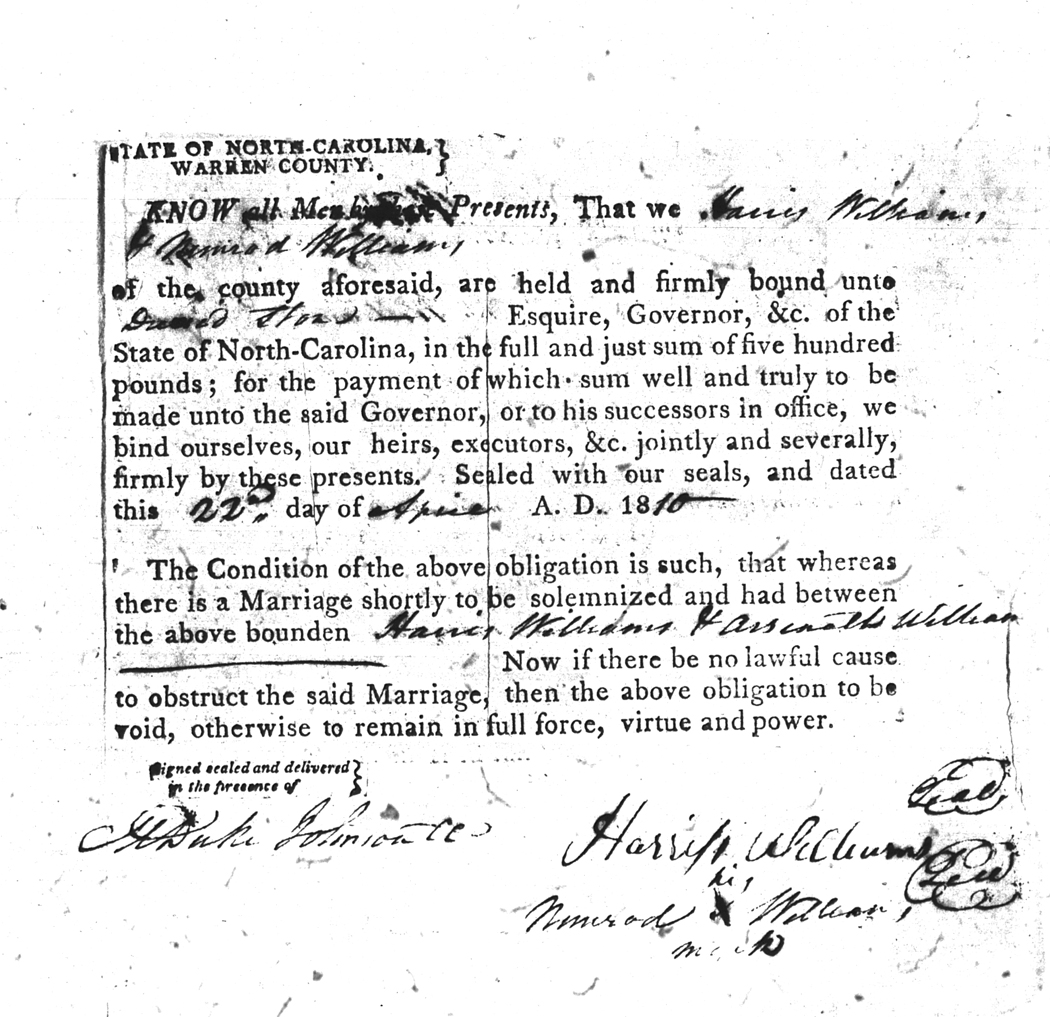 STATE OF NORTH-CAROLINA, }
WARREN COUNTY. }
KNOW all Men by these Presents, That we Harris Williams
& Nimrod Williams
of the county aforesaid, are held and firmly bound unto
David Stone Esquire, Governor, &c. of the
State of North-Carolina, in the full and just sum of five hundred
pounds; for the payment of which sum well and truly to be
made unto the said Governor, or to his successors in office, we
bind ourselves, our heirs, executors, &c. jointly and severally,
firmly by these presents. Sealed with our seals, and dated
this 22d. day of April A. D. 1810
The Condition of the above obligation is such, that whereas
there is a Marriage shortly to be solemnized and had between
the above bounden Harris Williams & Williams
Now if there be no lawful cause
to obstruct the said Marriage, then the above obligation to be
void, otherwise to remain in full force, virtue and power.
Signed sealed and delivered }
in the presence of }
Seal
Duke Johnson CC
Harriss Williams
Seal
his
Nimrod X Williams
mark